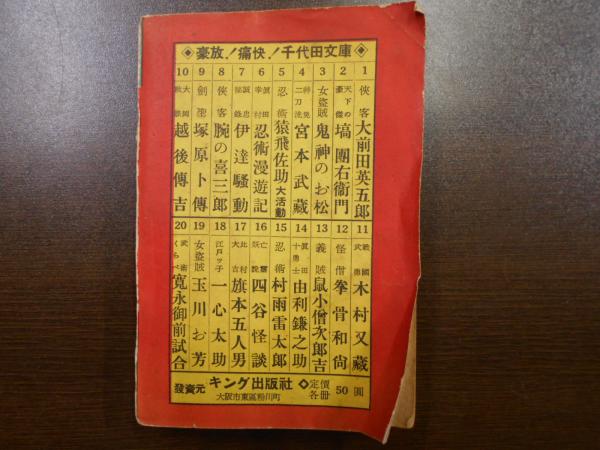 ◇豪放!痛快!千代田文庫◇
1 俠客 大前田英五郎
2 天下の豪傑 塙團右衞門
3 女盜賊 鬼神のお松
4 二刀流 宮本武藏
5 忍術 猿飛佐助大活動
6 眞田幸村 忍術漫遊記
7 誠忠 伊達騒動
8 俠客 腕の喜三郎
9 劍聖 塚原卜傳
10 大岡 越後傳吉
11 戰國武勇 木村又藏
12 怪僧 拳骨和尙
13 義賊 鼠小僧次郎吉
14 眞田十勇士 由利鎌之助
15 忍術 村雨雷太郎
16 亡靈妖說 四谷怪談
17 旗本五人男
18 江戸ッ子 一心太助
19 女盜賊 玉川お芳
20 武術くらべ 寬永御前試合
發賣元 キング出版社 ◇ 定價各册 50圓
大阪市東區粉川町